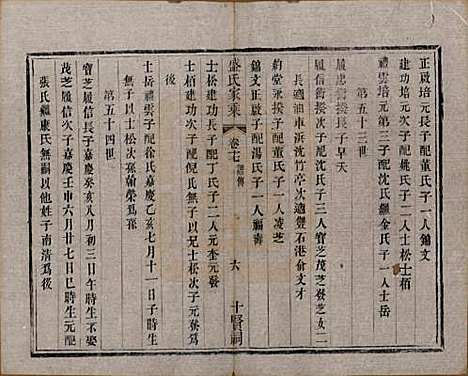 正啟培元長子配董氏子一人錦文
建功培元次子配姚氏子二人士松士栢
禮雲培元第三子配沈氏繼金氏子一人士岳
第五十三世
履忠銜揆長子早夭
履信銜揆次子配沈氏子三人寶芝茂芝發芝女二
長適油車浜沈竹亭次適雙石港俞文才
鈞堂永揆子配董氏子一人凌芝
錦文正啟子配湯氏子一人福壽
盛氏家乘
卷七
譜傳
六
十賢祠
士松建功長子配丁氏子二人元奎元發
士栢建功次子配倪氏無子以兄士松次子元發爲
後
士岳禮雲子配徐氏嘉慶乙亥七月十一日子時生
無子以士松次孫翰榮爲孫
第五十四世
寶芝履信長子嘉慶癸亥八月初三日午時生不娶
茂芝履信次子嘉慶壬申六月廿七日丑時生元配
張氏繼康氏無嗣以他姓子南清爲後